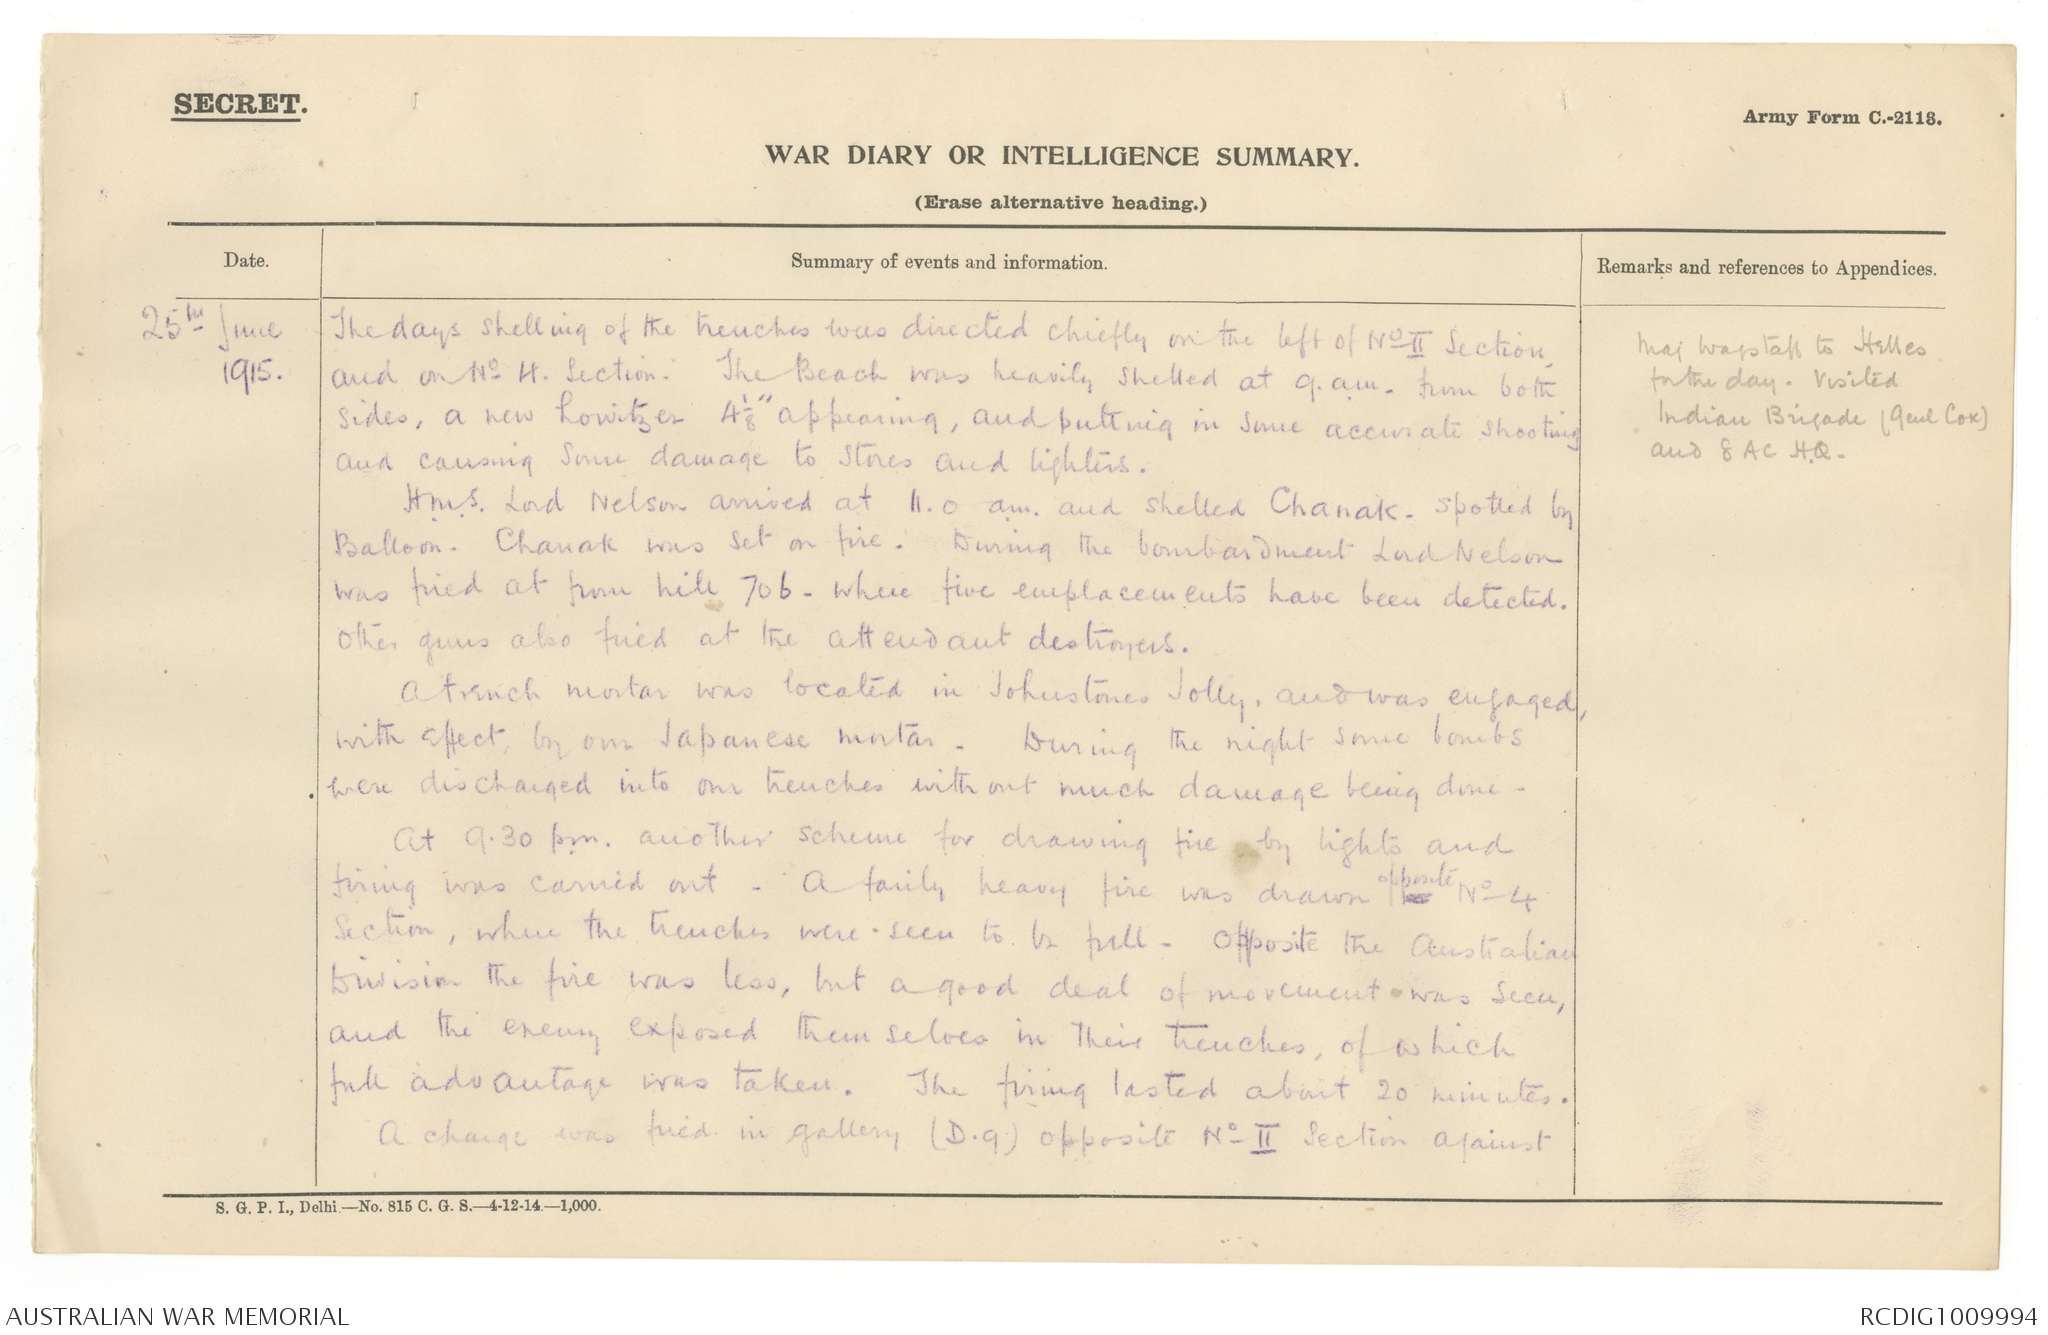 SECRET.
Army Form C.-2118.
WAR DIARY OR INTELLIGENCE SUMMARY.
(Erase alternative heading.)
Date.
Summary of events and information.
Remarks and references to Appendices.
25th June
1915.
The days shelling of the trenches was directed chiefly on the left of No II Section,
and on No 4. Section. The Beach was heavily shelled at 9. am. from both
sides, a new howitzer 4⅛" appearing, and putting in some accurate shooting
and causing some damage to stores and lighters.
H.M.S. Lord Nelson arrived at 11.0 am. and shelled Chanak. Spotted by
Balloon. Chanak was set on fire. During the bombardment Lord Nelson
was fired at from hill 706 - where five emplacements have been detected.
Other guns also fired at the attendant destroyers.
A trench mortar was located in Johnstones Jolly, and was engaged,
with effect, by our Japanese mortar. During the night some bombs
were discharged into our trenches without much damage being done.
At 9.30 pm. another scheme for drawing fire by lights and
firing was carried out. A fairly heavy fire was drawn opposite No 4
Section, where the trenches were seen to be full. Opposite the Australian
Division the fire was less, but a good deal of movement was seen,
and the enemy exposed themselves in their trenches, of which
full advantage was taken. The firing lasted about 20 minutes.
A charge was fired in gallery (D.9) opposite No II Section against
Maj Wagstaff to Helles
for the day. Visited
Indian Brigade (Genl Cox)
and 8 AC H.Q.
S. G. P. I., Delhi.—No. 815 C. G. S.—4-12-14.—1,000.
AUSTRALIAN WAR MEMORIAL
RCDIG1009994